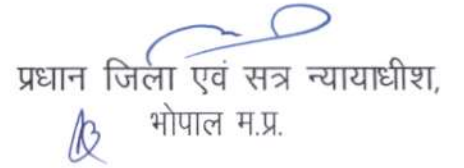 प्रधान जिला एवं सत्र न्यायाधीश,
भोपाल म.प्र.